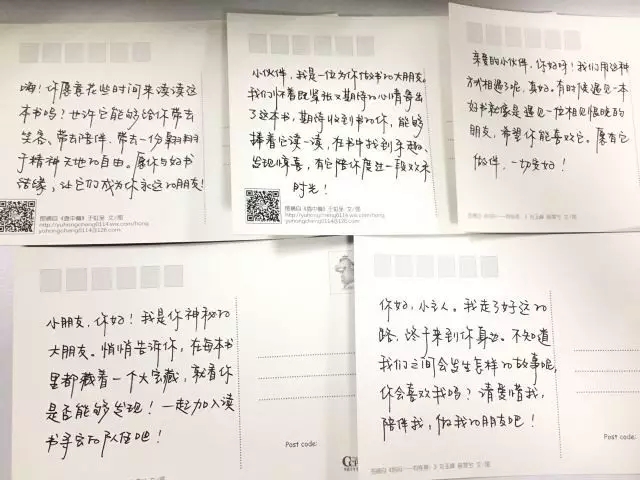 嗨！你愿意花些时间来读读这
本书吗？也许它能够给你带去
笑容、带去陪伴、带去一份翱翔
于精神天地的自由。愿你与好书
结缘，让它们成为你永远的朋友！
图摘自《盘中餐》于虹呈 文/图
http://yuhongcheng0114.wix.com/hong
yuhongcheng0114@126.com
小伙伴，我是一位为你做书的大朋友。
我们怀着既紧张又期待的心情寄出
了这本书，期待收到书的你，能够
捧着它读一读，在书中找到乐趣、
发现惊喜，有它陪你度过一段欢乐
时光！
图摘自《盘中餐》于虹呈 文/图
http://yuhongcheng0114.wix.com/hong
yuhongcheng0114@126.com
亲爱的小伙伴，你好呀！我们用这种
方式相遇了呢，真好。有时候遇见一本
好书就像是遇见一位相见恨晚的
朋友，希望你能喜欢它。愿有它
做伴，一切安好！
小朋友，你好！我是你神秘的
大朋友。悄悄告诉你，在每本书
里都藏着一个大宝藏，就看你
是否能够发现！一起加入读
书寻宝的队伍吧！
Post code:
你好，小主人。我走了好远的
路，终于来到你身边。不知道
我们之间会发生怎样的故事呢，
你会喜欢我吗？请爱惜我，
陪伴我，做我的朋友吧！
Post code: